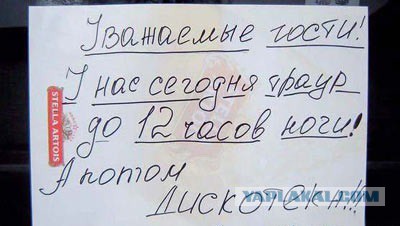 Уважаемые гости!
У нас сегодня траур
до 12 часов ночи!
А потом
ДИСКОТЕКА!!!
STELLA ARTOIS
YAPLAKAL.COM